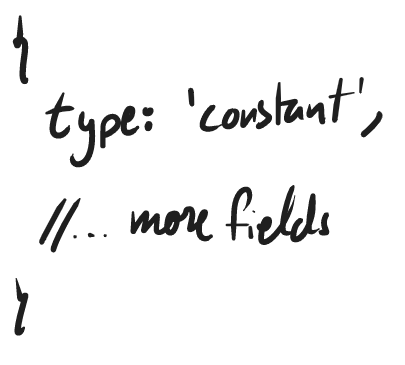 {
type: 'constant',
//... more fields
}